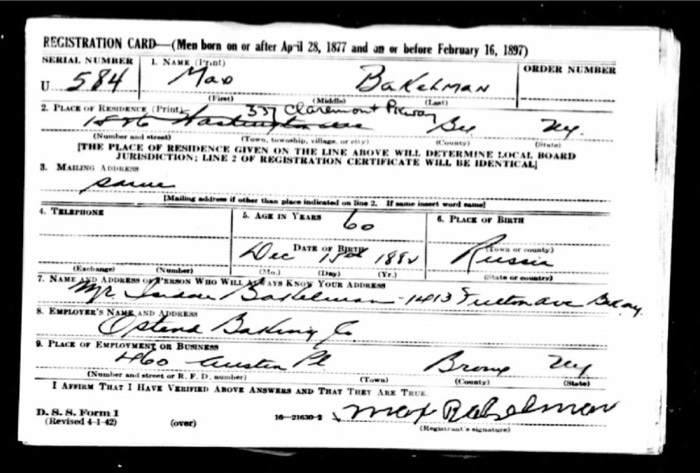 REGISTRATION CARD—(Men born on or after April 28, 1877 and on or before February 16, 1897)
SERIAL NUMBER 1. NAME (Print) ORDER NUMBER
U 584 Max Bakelman
(First) (Middle) (Last)
337 Claremont Pkway
2. PLACE OF RESIDENCE (Print)
Washington Ave Bx NY
(Number and street) (Town, township, village, or city) (County) (State)
[THE PLACE OF RESIDENCE GIVEN ON THE LINE ABOVE WILL DETERMINE LOCAL BOARD
JURISDICTION; LINE 2 OF REGISTRATION CERTIFICATE WILL BE IDENTICAL]
3. MAILING ADDRESS
same
[Mailing address if other than place indicated on line 2. If same insert word same]
4. TELEPHONE 5. AGE IN YEARS 6. PLACE OF BIRTH
60
DATE OF BIRTH (Town or county)
Dec 15 1882 Russia
(Exchange) (Number) (Mo.) (Day) (Yr.) (State or country)
7. NAME AND ADDRESS OF PERSON WHO WILL ALWAYS KNOW YOUR ADDRESS
Mr Isidore Bakelman - 1413 Fulton Ave Bx ny
8. EMPLOYER'S NAME AND ADDRESS
Ostend Baking Co
9. PLACE OF EMPLOYMENT OR BUSINESS
460 Austin Pl Bronx NY
(Number and street or R. F. D. number) (Town) (County) (State)
I AFFIRM THAT I HAVE VERIFIED ABOVE ANSWERS AND THAT THEY ARE TRUE.
D. S. S. Form 1
(Revised 4-1-42) (over) 16—21630-2 Max Bakelman
(Registrant's signature)